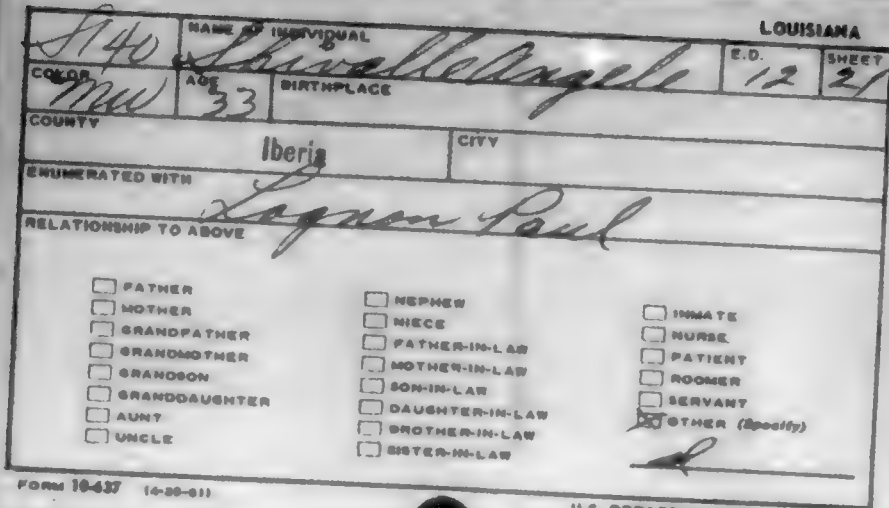 LOUISIANA
S140 NAME OF INDIVIDUAL Shivalle Angele E.D. 12 SHEET 21
COLOR MW AGE 33 BIRTHPLACE
COUNTY Iberia CITY
ENUMERATED WITH Lognon Paul
RELATIONSHIP TO ABOVE
FATHER
MOTHER
GRANDFATHER
GRANDMOTHER
GRANDSON
GRANDDAUGHTER
AUNT
UNCLE
NEPHEW
NIECE
FATHER-IN-LAW
MOTHER-IN-LAW
SON-IN-LAW
DAUGHTER-IN-LAW
BROTHER-IN-LAW
SISTER-IN-LAW
INMATE
NURSE
PATIENT
ROOMER
SERVANT
OTHER (Specify)
FORM 10-637